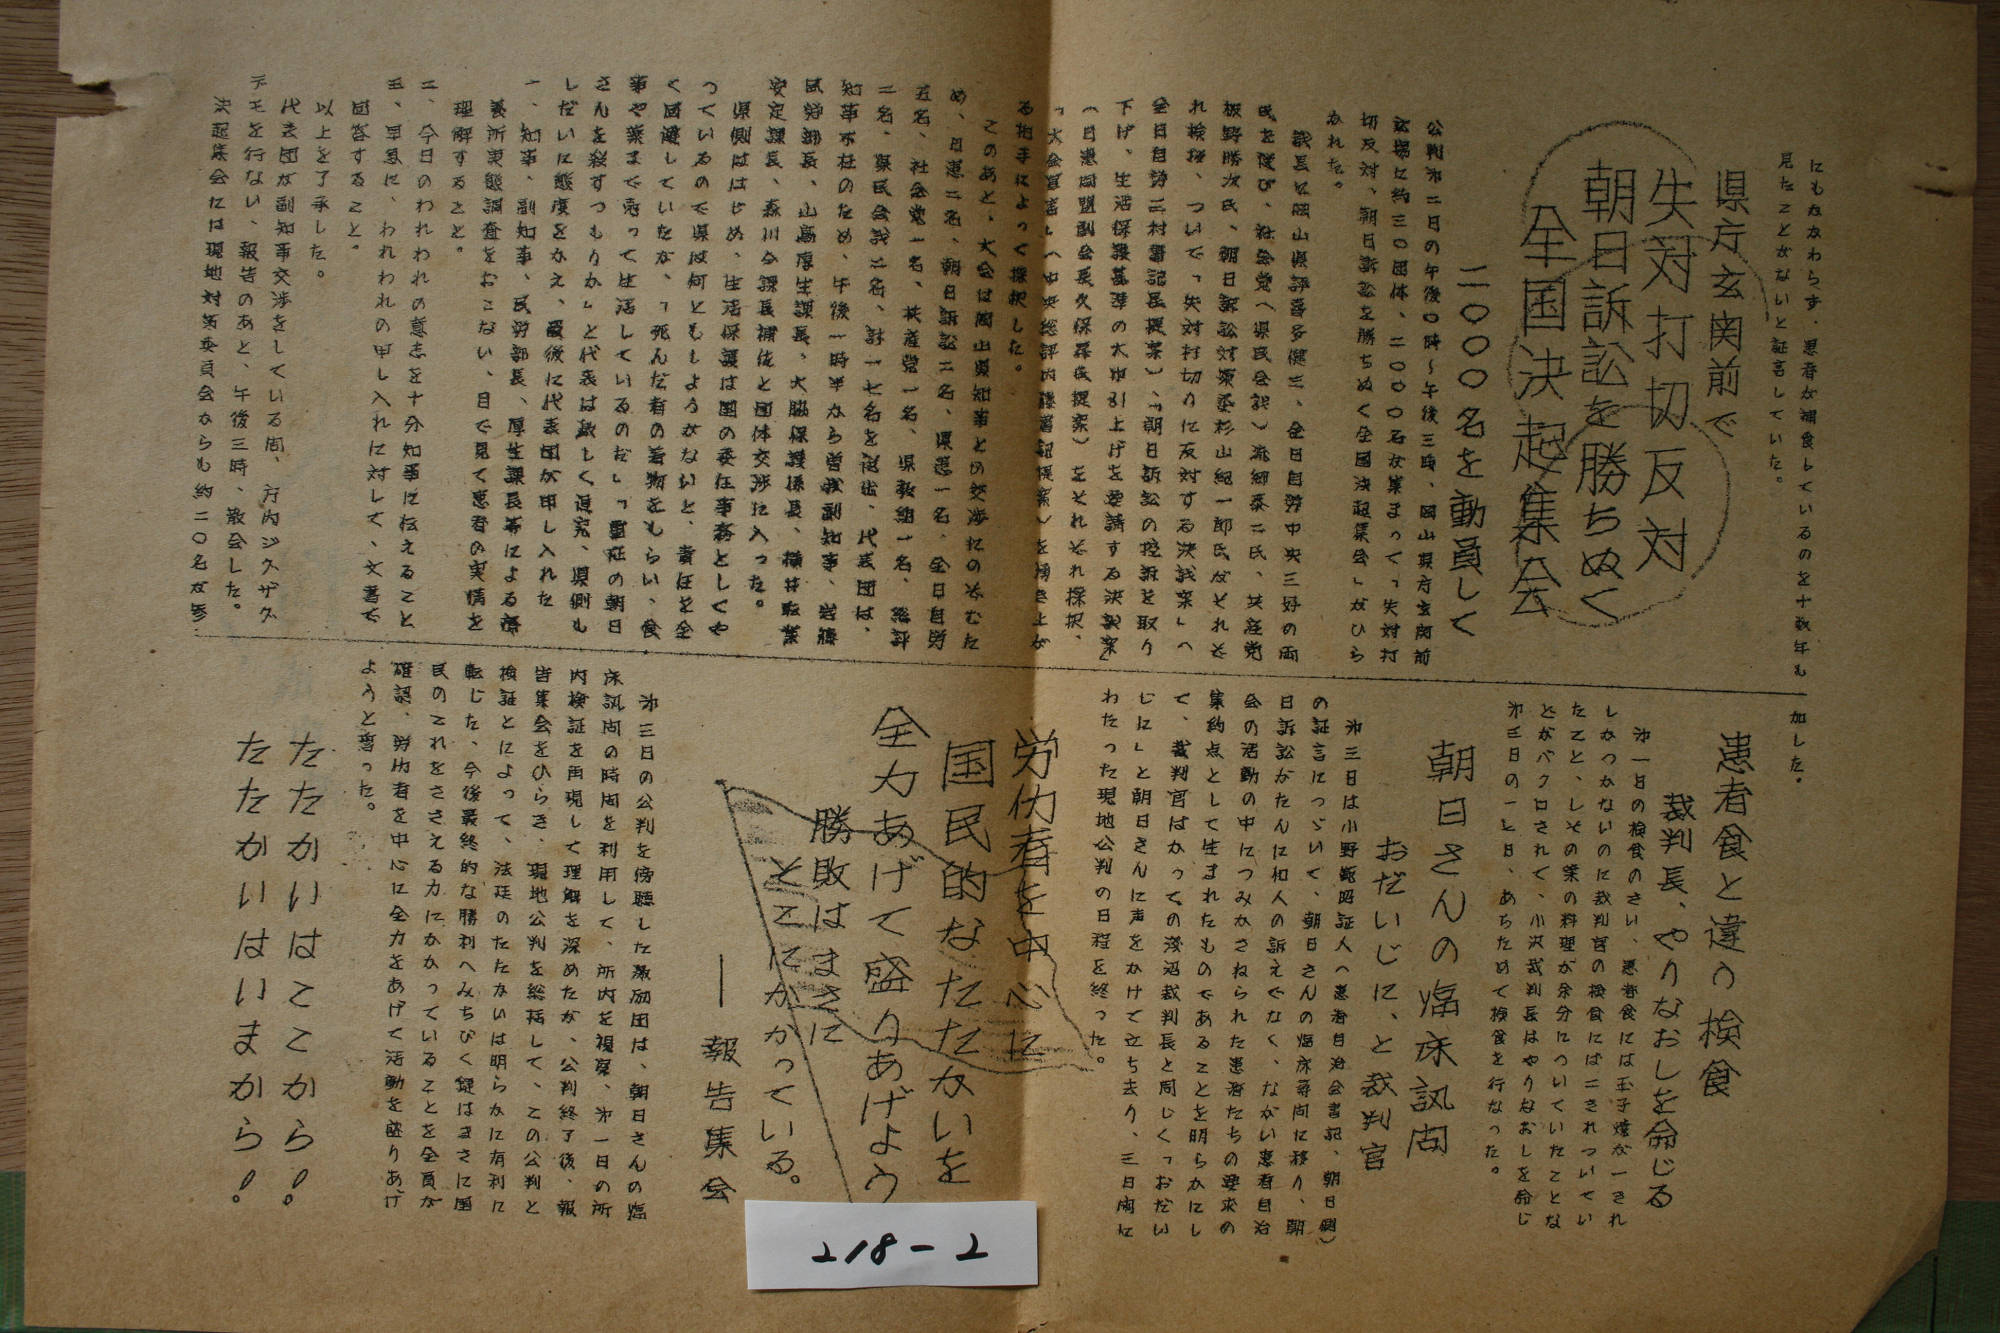 にもかかわらず、患者が補食しているのを十数年も
見たことがないと証言していた。
県庁玄関前で
失対打切反対
朝日訴訟を勝ちぬく
全国決起集会
二〇〇〇名を動員して
公判第二日の午後〇時～午後三時、岡山県庁玄関前
広場に約三〇団体、二〇〇〇名が集まって「失対打
切反対、朝日訴訟を勝ちぬく全国決起集会」がひら
かれた。
議長に岡山県評喜多健三、全日自労中央三好の両
氏を選び、社会党(県民会議)
板野勝次氏、朝日訴訟対策委杉山絽一郎氏がそれぞ
れ挨拶、ついで「失対打切りに反対する決議案」(
全日自労二村書記長提案)、「朝日訴訟の控訴を取り
下げ、生活保護基準の大巾引上げを要請する決議案」
(日患同盟副会長久保 提案)をそれぞれ採択、
「大会宣言」
る拍手によって採択した。
このあと、大会は岡山県知事との交渉にのぞむた
め、日患二名、朝日訴訟二名、県患一名、全日自労
五名、社会党一名、共産党一名、県教組一名、総評
二名、県民会議二名、計一七名を選出、代表団は、
知事不在のため、午後一時半から曽我副知事、岩藤
民労部長、山高厚生課長、大脇保護係長、横井職業
安定課長、森川今課長補佐と団体交渉に入った。
県側ははじめ、生活保護は国の委任事務としてや
っているので県は何ともしようがないと、責任を全
く回避していたが、「死んだ者の着物をもらい、食
事や薬まで売って生活しているのだ」「重症の朝日
さんを殺すつもりか」と代表は激しく追究、県側も
しだいに態度をかえ、最後に代表団が申し入れた
一、知事、副知事、民労部長、厚生課長等による療
養所実態調査をおこない、目で見て患者の実情を
理解すること。
二、今日のわれわれの意志を十分知事に伝えること
三、早急に、われわれの申し入れに対して、文書で
回答すること。
以上を了承した。
代表団が副知事交渉をしている間、庁内ジグザグ
デモを行ない、報告のあと、午後三時、散会した。
決起集会には現地対策委員会からも約二〇名が参
加した。
患者食と違う検食
裁判長、やりなおしを命じる
第一日の検食のさい、患者食には玉子焼が一きれ
しかつかないのに裁判官の検食には二きれついてい
たこと、しその葉の料理が余分についていたことな
どがバクロされて、小沢裁判長はやりなおしを命じ
第三日の一七日、あらためて検食を行なった。
朝日さんの臨床訊問
おだいじに、と裁判官
第三日は小野範昭証人(患者自治会書記、朝日側)
の証言につづいて、朝日さんの臨床尋問に移り、朝
日訴訟がたんに和人の訴えでなく、ながい患者自治
会の活動の中につみかさねられた患者たちの要求の
集約点として生まれたものであることを明らかにし
て、裁判官はかつての浅沼裁判長と同じく「おだい
じに」と朝日さんに声をかけて立ち去り、三日間に
わたった現地公判の日程を終った。
労仂者を中心に
国民的なたたかいを
全力あげて盛りあげよう
勝敗はまさに
そこにかかっている。
――報告集会
第三日の公判を傍聴した激励団は、朝日さんの臨
床訊問の時間を利用して、所内を視察、第一日の所
内検証を再現して理解を深めたが、公判終了後、報
告集会をひらき、現地公判を総括して、この公判と
検証とによって、法廷のたたかいは明らかに有利に
転じた、今後最終的な勝利へみちびく鍵はまさに国
民のこれをささえる力にかかっていることを全員が
確認、労仂者を中心に全力をあげて活動を盛りあげ
ようと誓った。
たたかいはここから！
たたかいはいまから！
218-2